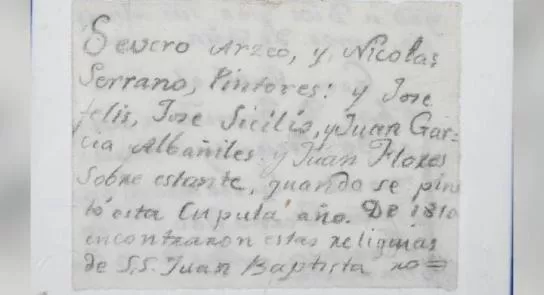 Severo Arzeo, y Nicolas
Serrano, Pintores: y Jose
felis, Jose Sicilis, y Juan Gar-
cia Albañiles. y Juan Flores
Sobre estante, quando se pin
tó esta Cupula año. De 1810
incontraron estas reliquias
de S.S. Juan Baptista no=